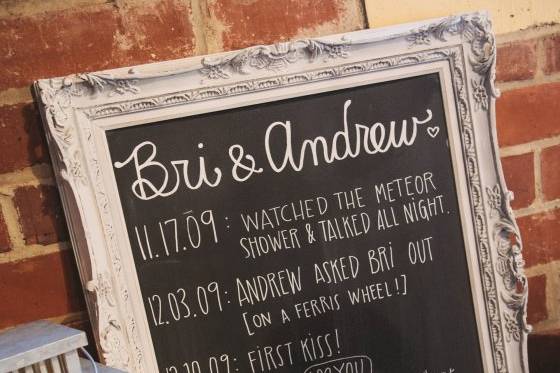 Bri & Andrew ♡
11.17.09: WATCHED THE METEOR
SHOWER & TALKED ALL NIGHT.
12.03.09: ANDREW ASKED BRI OUT
[ON A FERRIS WHEEL!]
12.10.09: FIRST KISS!